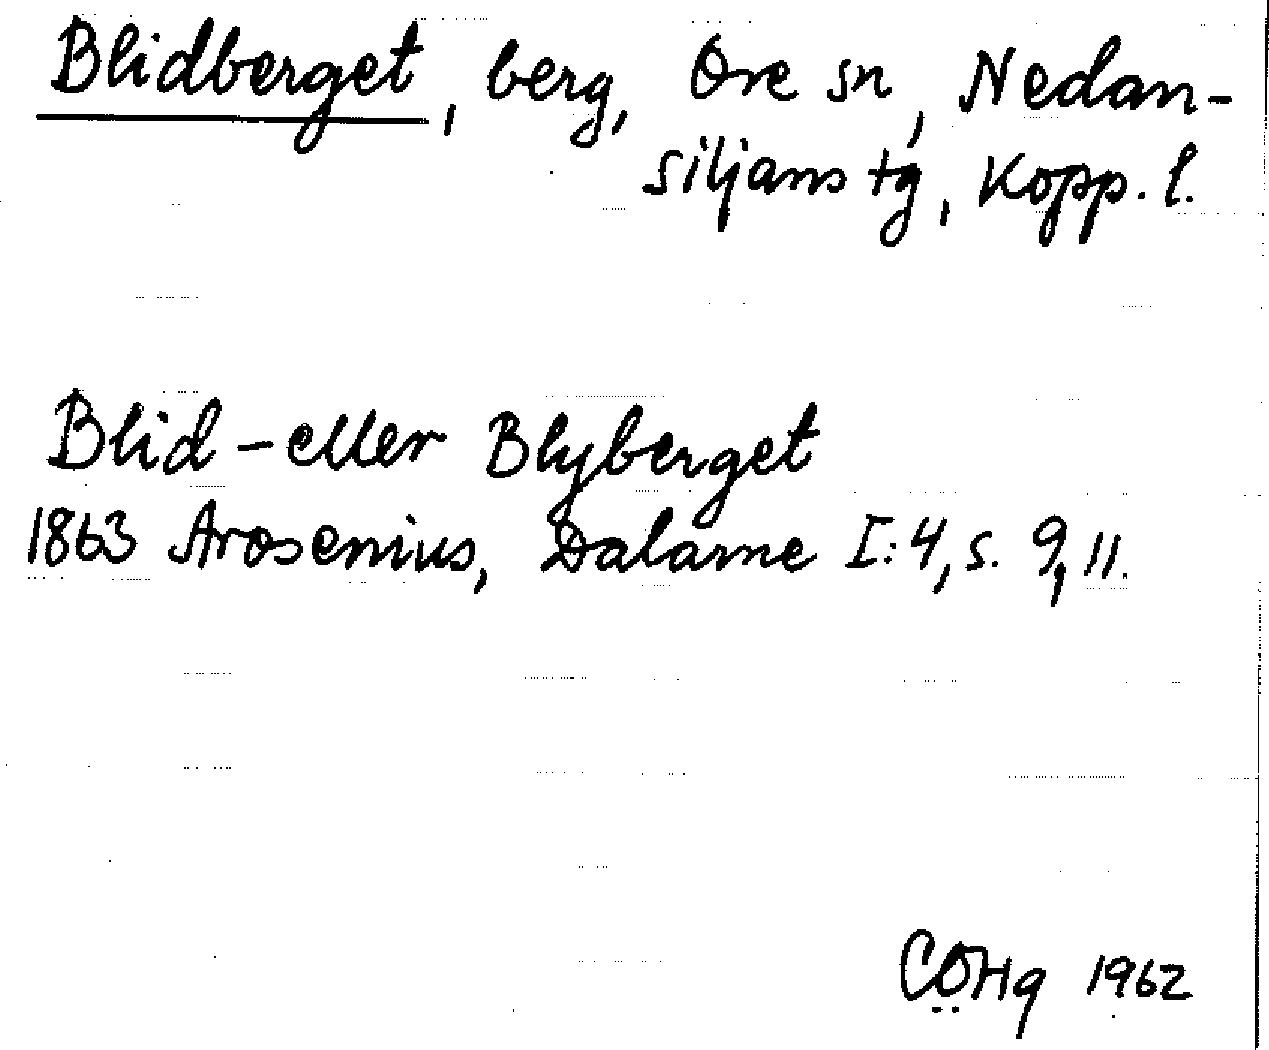 Blidberget, berg, Ore sn, Nedan-
siljans tg, Kopp. l.
Blid- eller Blyberget
1863 Arosenius, Dalarne I:4, s. 9, 11.
CÖHg 1962